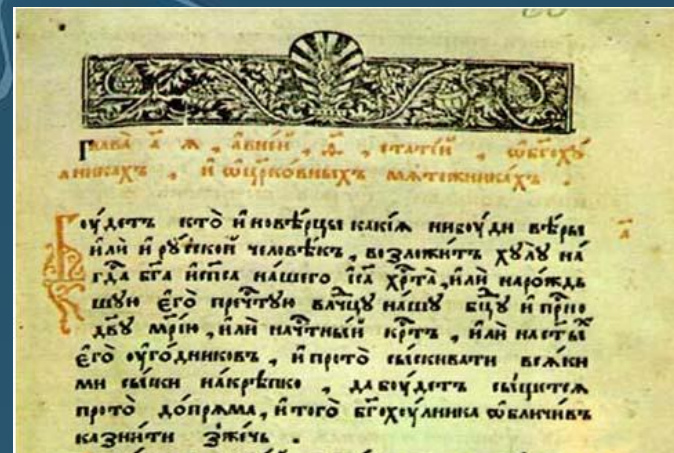 Глава̀ а҃ ꙗ , а в не́й , ѳ҃ , стате́й , ѡ бг҃охꙋ́
лникахъ , и҆ ѡ цр҃ко́вныхъ мѧте́жникахъ .
Бꙋ́детъ кто̀ и҆новѣ́рцы какі́ѧ нибꙋ́ди вѣ́ры
и҆лѝ и҆ рꙋ́ской человѣ́къ , возложи́тъ хꙋлꙋ̀ на́
гд҇а бг҃а и҆ сп҃са на́шего і҆с҃а хр҇та̀ , и҆лѝ наро́ждь
шꙋю є҆гѡ̀ преч҇тꙋю влч҇цꙋ на́шꙋ бц҃ꙋ и҆ при҇но
дв҃ꙋ мр҃і́ю , и҆лѝ на ч҇тны́й кр҇тъ , и҆лѝ на ст҃ы́х
є҆гѡ̀ ᲂу҆го́дниковъ , и҆ про то̀ сы́скивати всѧ́ки
ми сы́ски на́крѣпко , да бꙋ́детъ сы́щетсѧ
про то̀ до́прѧма , и҆ того̀ бг҃охꙋ́лника ѡ҆бличи́въ
казни́ти зже́чь .
а҃